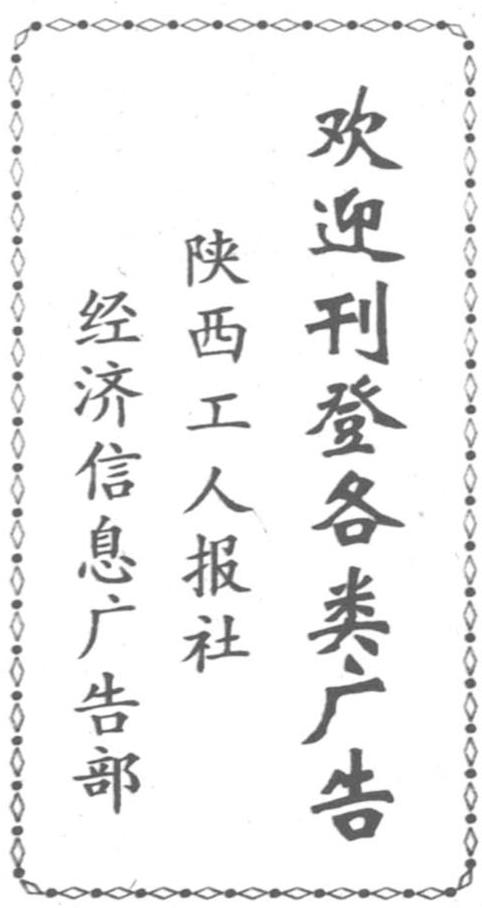 欢迎刊登各类广告
陕西工人报社
经济信息广告部